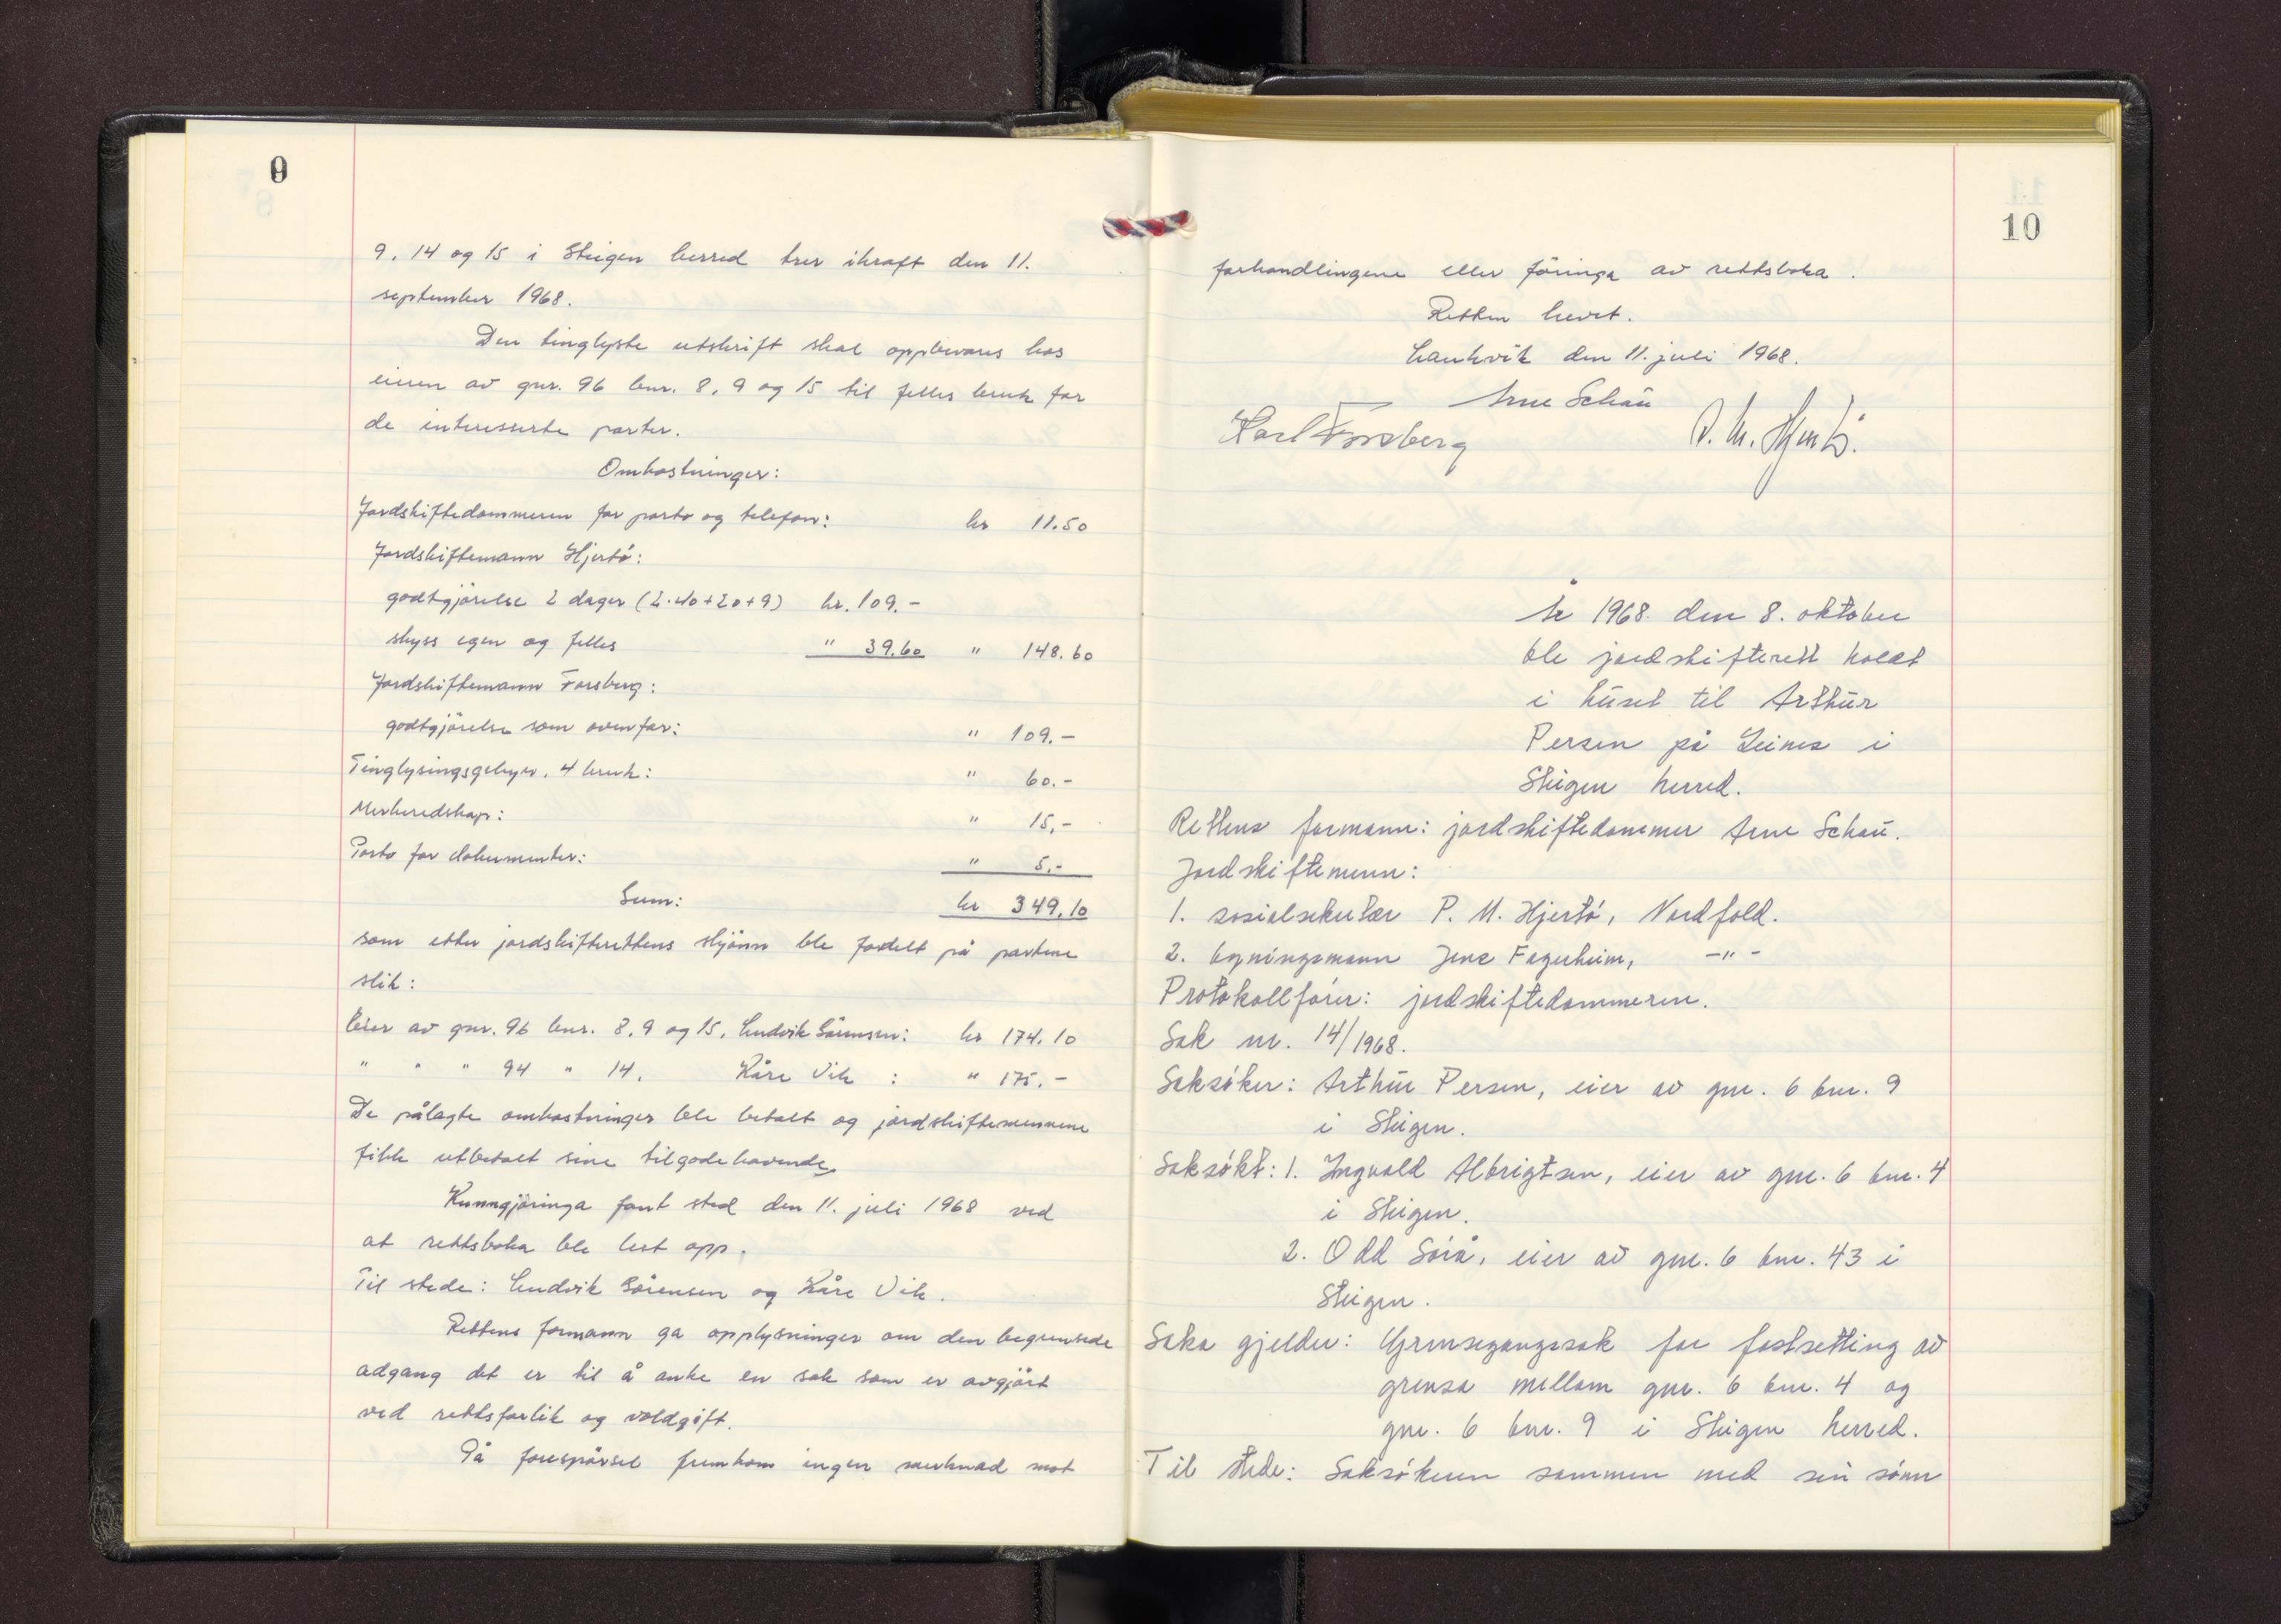 9
9, 14 og 15 i Steigen herred trer ikraft den 11.
september 1968.
Den tinglyste utskrift skal oppbevares hos
eieren av gnr. 96 bnr. 8, 9 og 15 til felles bruk for
de interesserte parter.
Omkostninger:
Jordskiftedommeren for porto og telefon: kr 11.50
Jordskiftemann Hjertö:
godtgjörelse 2 dager (2·40+20+9) kr. 109.-
skyss egen og felles " 39.60 " 148.60
Jordskiftemann Forsberg:
godtgjörelse som ovenfor: " 109.-
Tinglysingsgebyr, 4 bruk: " 60.-
Merkeredskap: " 15,-
Porto for dokumenter: " 5,-
Sum: kr 349,10
som etter jordskifterettens skjönn ble fordelt på partene
slik:
Eier av gnr. 96 bnr. 8, 9 og 15, Ludvik Sörensen: kr 174,10
" " " 94 " 14, Kåre Vik : " 175.-
De pålagte omkostninger ble betalt og jordskiftemennene
fikk utbetalt sine tilgodehavende.
Kunngjöringa fant sted den 11. juli 1968 ved
at rettsboka ble lest opp.
Til stede: Ludvik Sörensen og Kåre Vik.
Rettens formann ga opplysninger om den begrensede
adgang det er til å anke en sak som er avgjört
ved rettsforlik og voldgift.
På forespörsel fremkom ingen merknad mot
10
forhandlingene eller föringa av rettsboka.
Retten hevet.
Laukvik den 11. juli 1968.
Arne Schau
Karl Forsberg P. M. Hjertö.
År 1968 den 8. oktober
ble jordskifterett holdt
i huset til Arthur
Persen på Leines i
Steigen herred.
Rettens formann: jordskiftedommer Arne Schau.
Jordskiftemenn:
1. sosialsekretær P. M. Hjertö, Nordfold.
2. bygningsmann Jens Fagerheim, -"-
Protokollförer: jordskiftedommeren.
Sak nr. 14/1968.
Saksöker: Arthur Persen, eier av gnr. 6 bnr. 9
i Steigen.
Saksökt: 1. Ingvald Albrigtsen, eier av gnr. 6 bnr. 4
i Steigen.
2. Odd Sörå, eier av gnr. 6 bnr. 43 i
Steigen.
Saka gjelder: Grensegangssak for fastsetting av
grensa mellom gnr. 6 bnr. 4 og
gnr. 6 bnr. 9 i Steigen herred.
Til stede: Saksökeren sammen med sin sönn